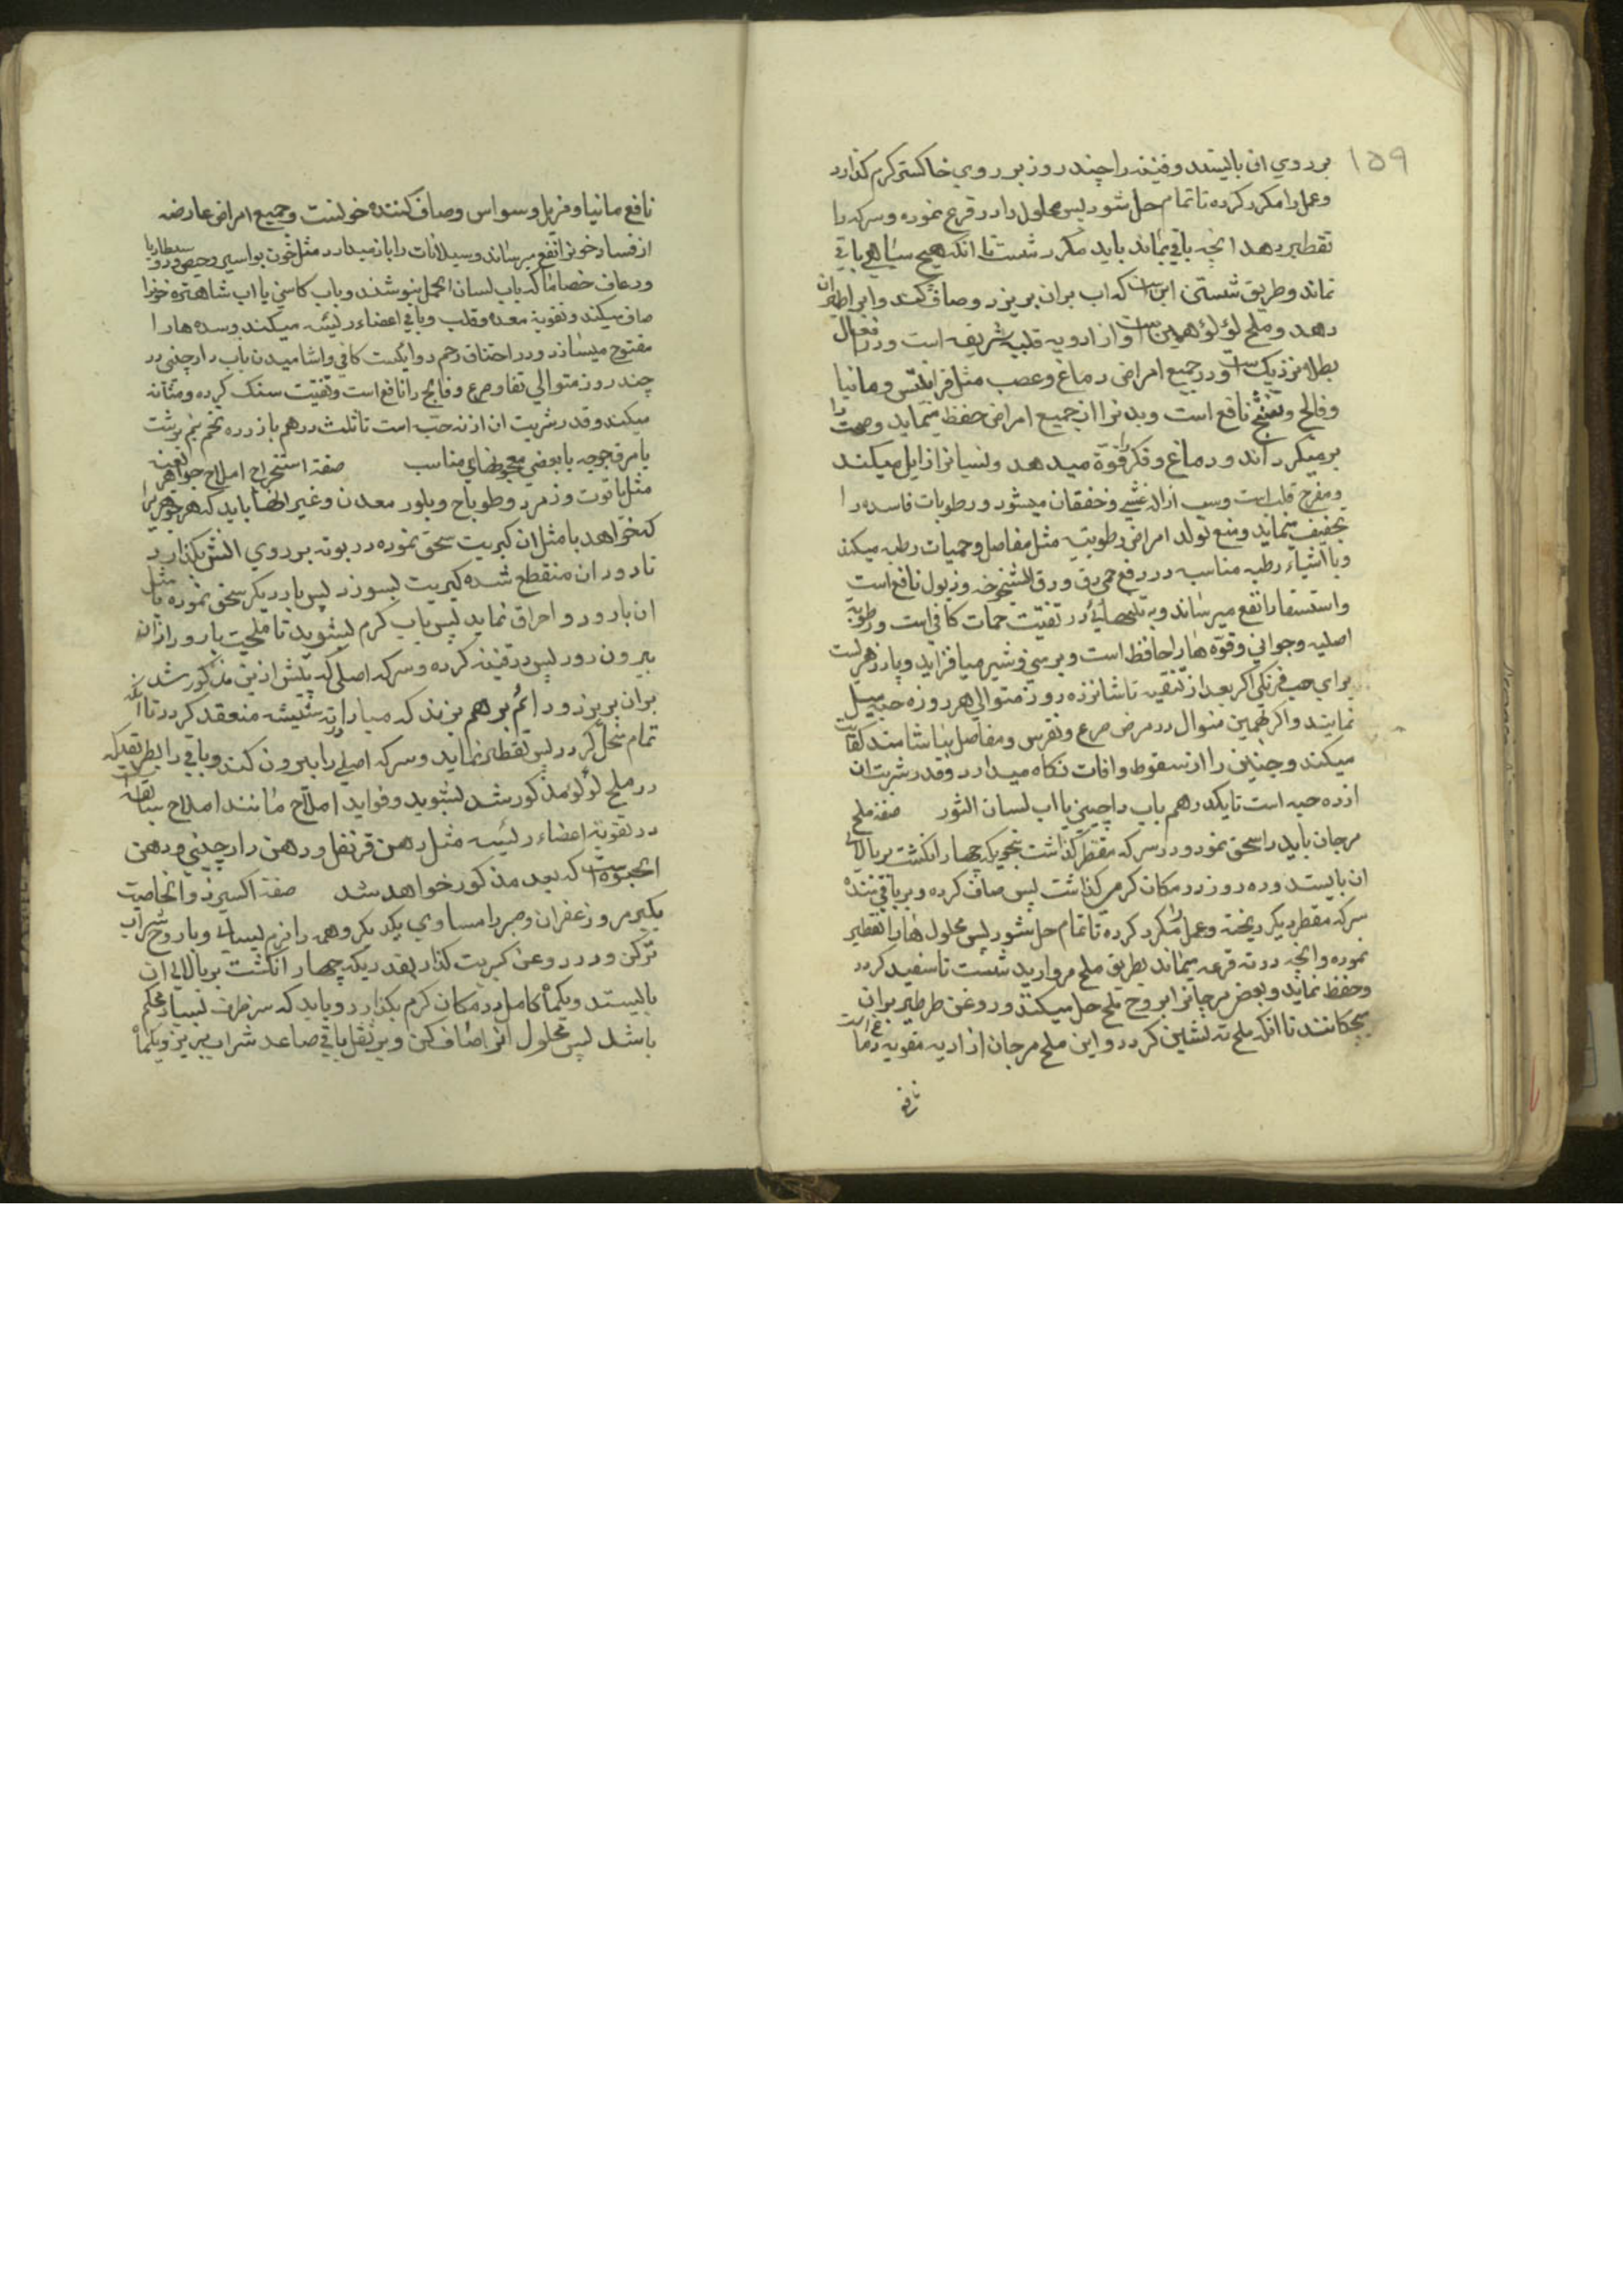 ۱۵۹
بر روي ان بايستد و قنينه را چند روز بر روي خاكستر گرم گذارد
وعمل را مكرر كرده تا تمام حل شود پس محلول را در قرع نموده و سركه را
تقطير دهد انچه باقي بماند بايد مكرر شست تا انكه هيچ سياهي باقي
نماند وطريق شستن اين است كه اب بران بريزد وصاف كند وابرا طيران
دهد وملح لؤلؤ همين است و از ادويه قلبيه شريفه است ودر افعال
بطلا نزديك است ودر جميع امراض دماغ وعصب مثل قرانيطس ومانيا
وفالج وتشنج نافع است وبدنرا از جميع امراض حفظ مينمايد وصحت را
برميكرداند ودماغ وفكر را قوة ميدهد ونسيانرا زايل ميكند
ومفرح قلب است وسبب ازاله غشي وخفقان ميشود ورطوبات فاسده را
تجفيف مينمايد ومنع تولد امراض رطوبتيه مثل مفاصل وحميات رطبه ميكند
وبا اشياء رطبه مناسبه در رفع حمى دق ودق الشيخوخه وذبول نافع است
واستسقا را نفع ميرساند وبه تنهائي در تفتيت حصات كافي است ورطوبة
اصليه وجواني وقوة ها را حافظ است وبر مني وشير ميافزايد وپادزهريست
براي حب فرنكي اكر بعد از تنقيه تا شانزده روز متوالي هر روزه حبه ميل
نمايند واكر بهمين منوال در مرض صرع ونقرس ومفاصل بياشامند كفايت
ميكند وجنين را از سقوط وافات نكاه ميدارد وقدر شربت ان
از ده حبه است تا يكدرهم باب دارچيني يا اب لسان الثور صفة ملح
مرجان بايد را سحق نمود ودر سركه مقطر كذاشت بنحويكه چهار انكشت بر بالاي
ان بايستد وده روز در مكان كرمي كذاشت پس صاف كرده وبر باقي مانده
سركه مقطر ديكر ريخته وعمل را مكرر كرده تا تمام حل شود پس محلول ها را تقطير
نموده وانچه در ته قرعه بماند بطريق ملح مرواريد شست تا سفيد كردد
وحفظ نمايد وبعضي مرجانرا بروح ملح حل ميكنند وروغن طرطير بران
ميچكانند تا انكه ملح ته نشين كردد واين ملح مرجان از ادويه مقويه دماغ است
نافع
نافع مانيا ومزيل وسواس وصاف كننده خونست وجميع امراض عارضه
از فساد خونرا نفع ميرساند وسيلانات را باز ميدارد مثل خون بواسير وحيض ودوسنطاريا
ورعاف خصاصا كه باب لسان الحمل بنوشند وباب كاسني يا اب شاهتره خونرا
صاف ميكند وتقويه معده وقلب وباقي اعضاء رئيسه ميكند وسده ها را
مفتوح ميسازد ودر اختناق رحم دوائيست كافي واشاميدن باب دارچيني در
چند روز متوالي نقا وصرع وفالج را نافع است وتفتيت سنك كرده ومثانه
ميكند وقدر شربت ان از نه حب است تا ثلث درهم با زرده تخم نيم برشت
يا مرق جوجه يا بعضي معجونهاي مناسب صفة استخراج املاح جواهر ثمينه
مثل ياقوت وزمرد وطوباج وبلور معدن وغير انها بايد كه هر جوهريرا
كه خواهد با مثل ان كبريت سحق نموده در بوته بر روي اتش بكذارد
تا دود ان منقطع شده كبريت بسوزد پس بار ديكر سحق نموده با مثل
ان بارود و احراق نمايد پس باب كرم بشويد تا ملحيت بارود از ان
بيرون رود پس در قنينه كرده وسركه اصلي كه پيش از ين مذكور شد
بران بريزد ودائم برهم بزند كه مبادا در ته شيشه منعقد كردد تا انكه
تمام منحل كردد پس تقطير نمايد وسركه اصلي را بيرون كند وباقي را بطريقيكه
در ملح لؤلؤ مذكور شد بشويد وفوايد املاح مانند املاح سابقه است
در تقويه اعضاء رئيسه مثل دهن قرنفل ودهن دارچيني ودهن
كه بعد مذكور خواهد شد صفة اكسير ذو الخاصيت
بكير مر و زعفران وصبر را مساوي يكديكر وهمه را نرم بساي وبا روح شراب
تر كن ودر روغن كبريت كذار بقدريكه چهار انكشت بر بالاي ان
بايستد ويكماه كامل در مكان كرم بكذارد وبايد كه سر ظرف بسيار محكم
باشد پس محلول انرا صاف كن وبر ثفل باقي صاعد شراب بريز ويكماه